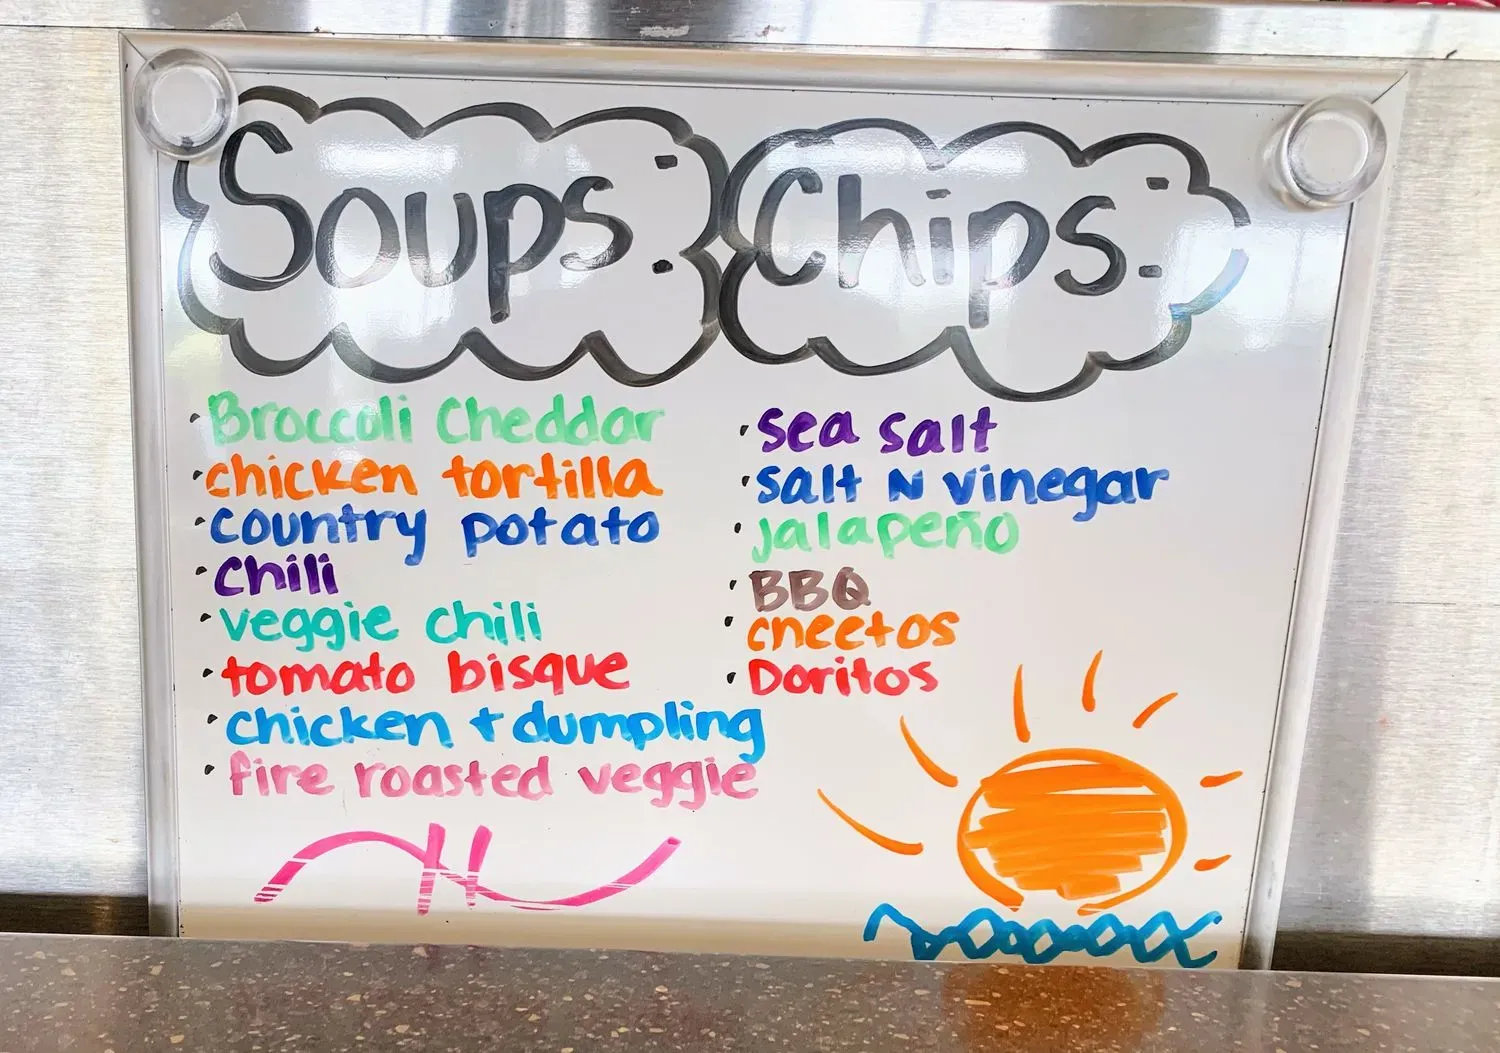 Soups:
• Broccoli Cheddar
• chicken tortilla
• country potato
• chili
• veggie chili
• tomato bisque
• chicken + dumpling
• fire roasted veggie
Chips:
• sea salt
• salt N vinegar
• jalapeño
• BBQ
• cheetos
• Doritos